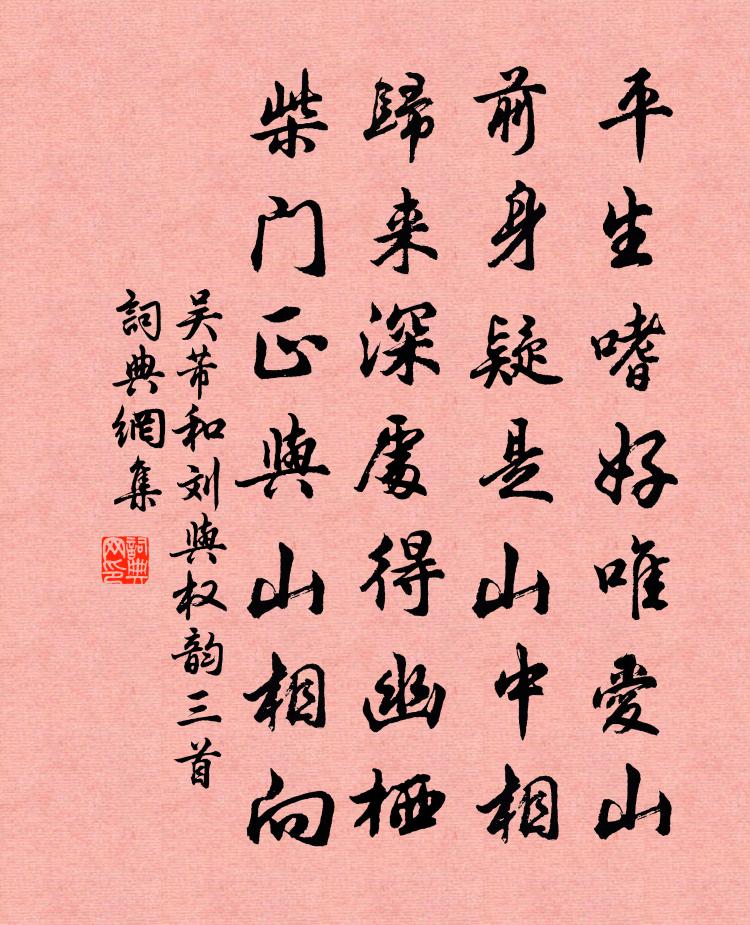 平生嗜好唯愛山
前身疑是山中相
歸来深處得幽栖
柴门正與山相向
吴芾和刘與权韵三首
詞典網集
詞典网印